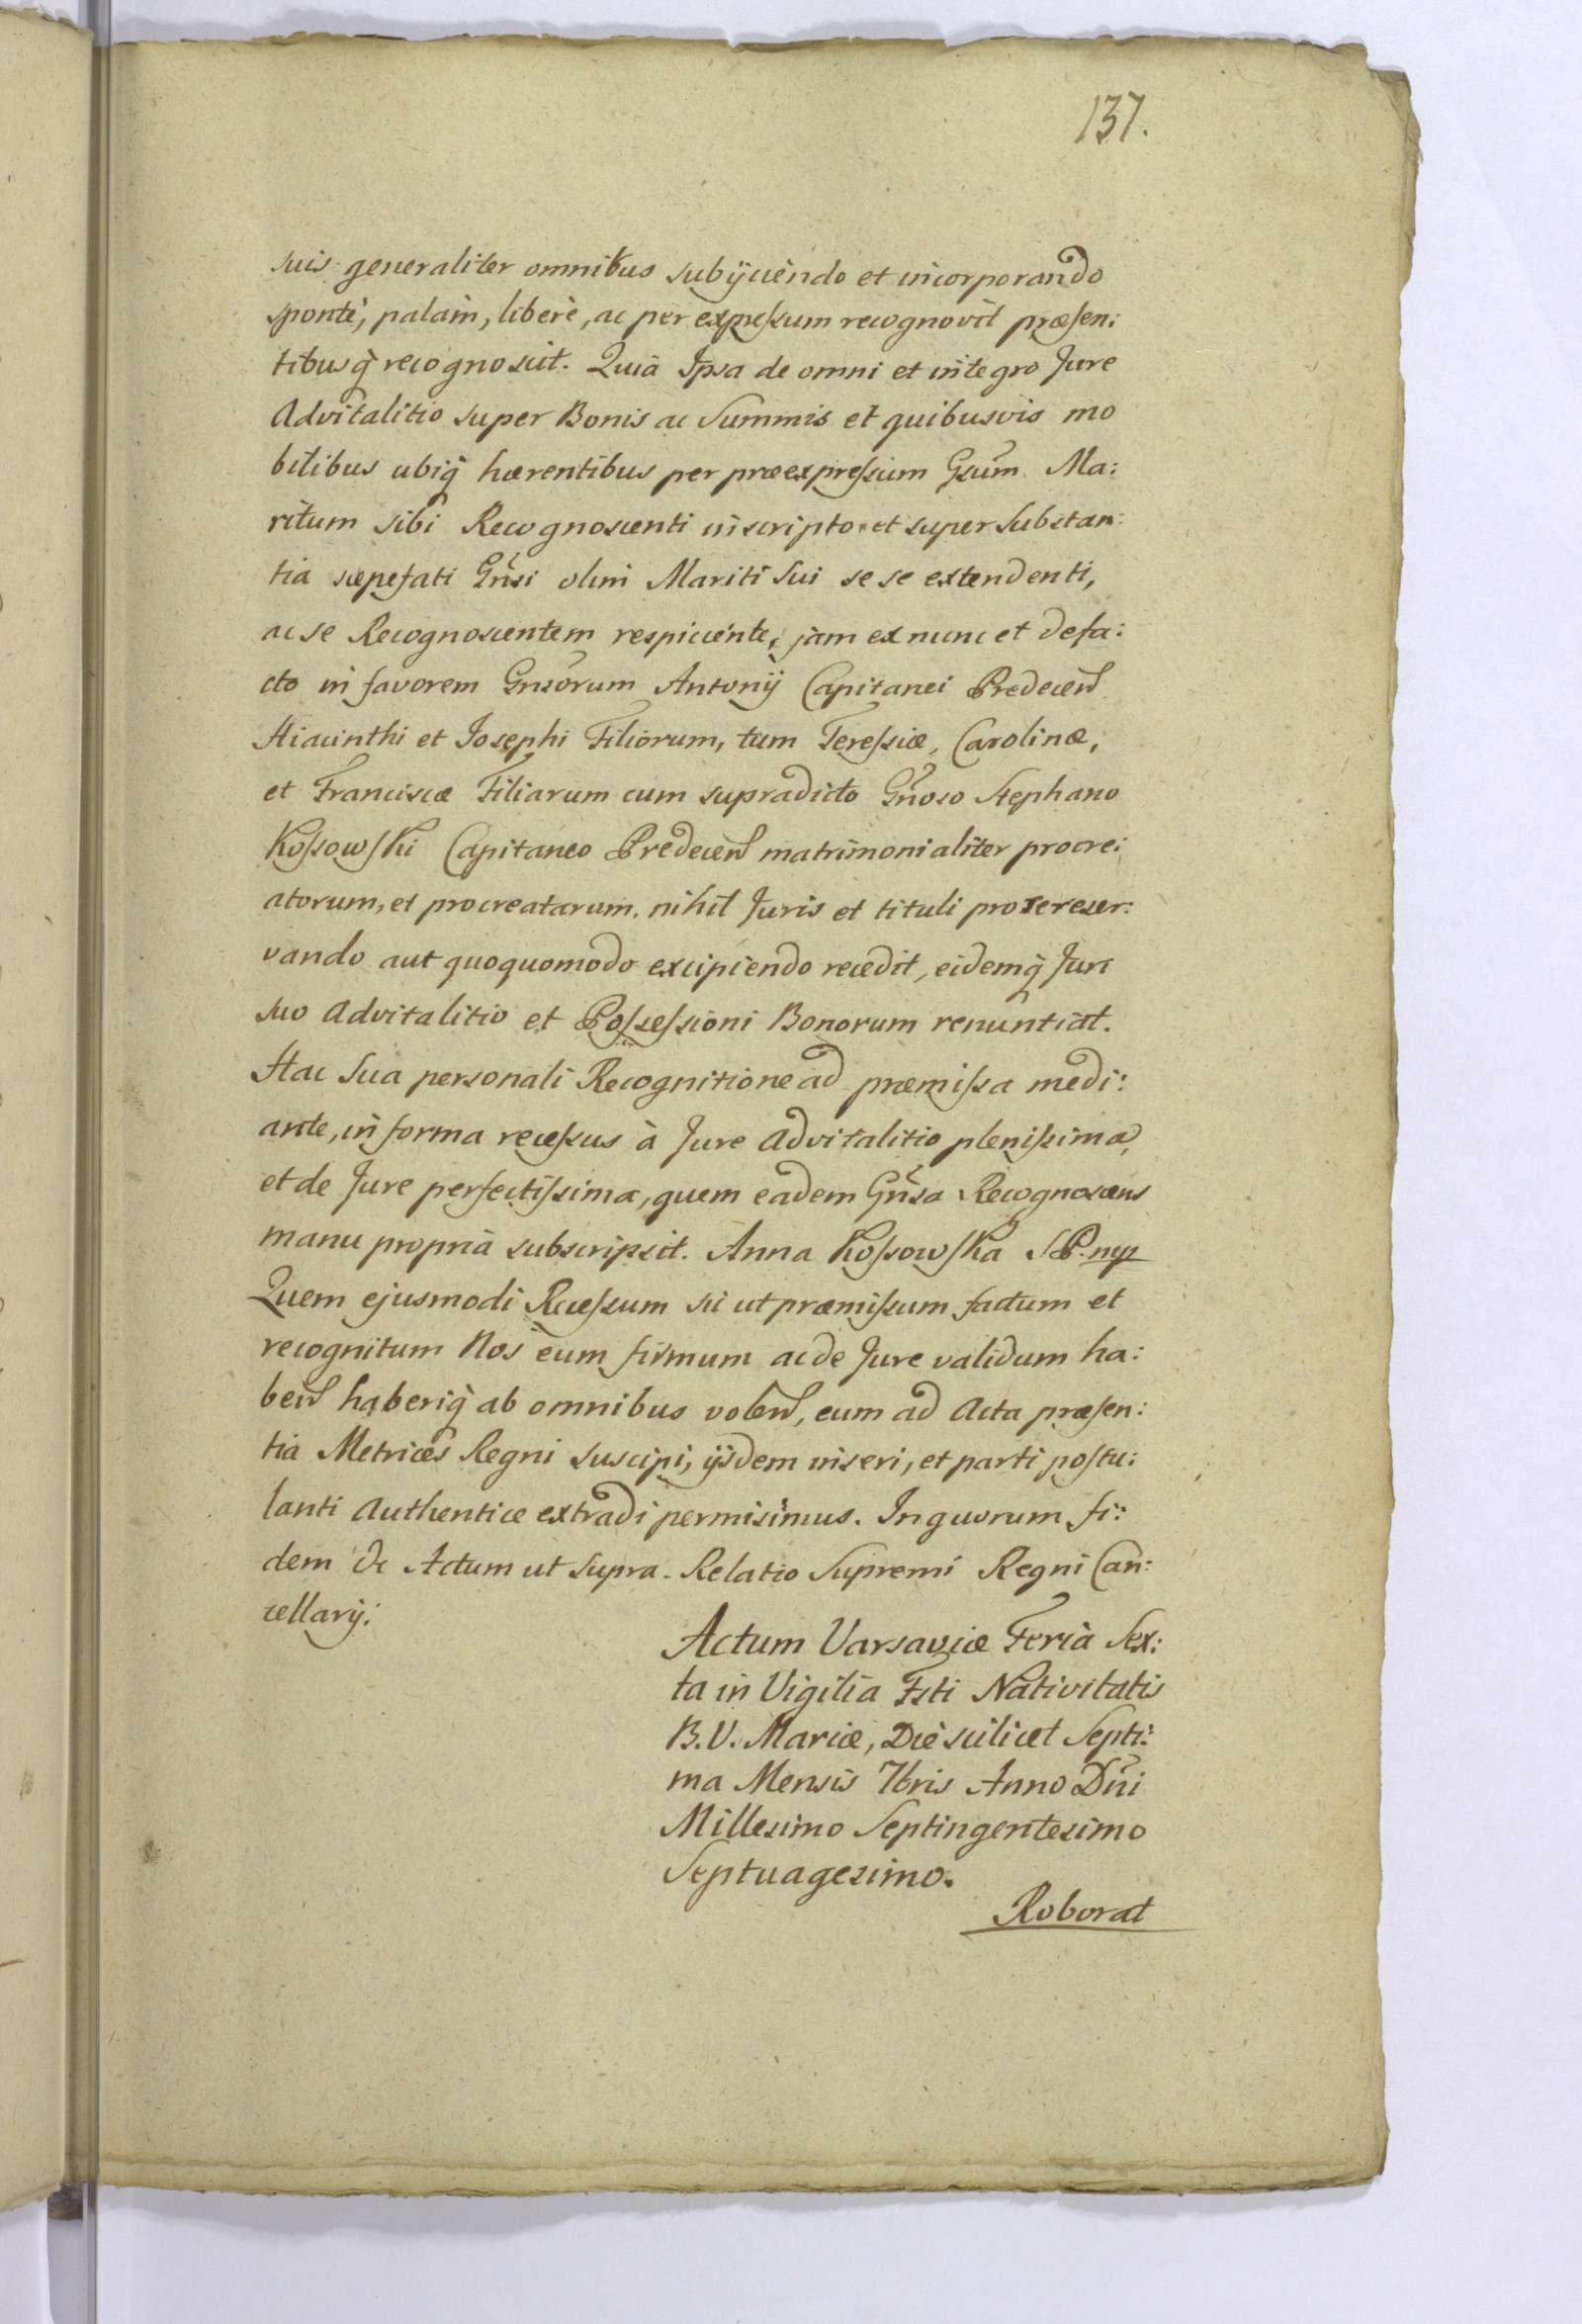 137.
suis generaliter omnibus subijciendo et incorporando
sponte, palam, libere, ac per expressum recognovit præsen:
tibusq̃ recognoscit. Quia Ipsa de omni et integro Jure
Advitalitio super Bonis ac Summis et quibusvis mo
bilibus ubiq̃ hærentibus per præexpressum Gsum Ma:
ritum sibi Recognoscenti inscripto et super Substan:
tia sæpefati Gnsi olim Mariti Sui se se extendenti,
ac se Recognoscentem respiciente, jam ex nunc et defa:
cto in favorem Gnsorum Antonij Capitanei Predecen̄
Hiacinthi et Josephi Filiorum, tum Teressiæ, Carolinæ,
et Franciscæ Filiarum cum supradicto Gnoso Stephano
Kossowski Capitaneo Predecen̄ matrimonialiter procre:
atorum, et procreatarum, nihil Juris et tituli pro se reser:
vando aut quoquomodo excipiendo recedit, eidemq̃ Juri
suo Advitalitio et Possessioni Bonorum renuntiat.
Hac Sua personali Recognitione ad præmissa medi:
ante, in forma recessus à Jure Advitalitio plenissima,
et de Jure perfectissima, quem eadem Gnsa Recognoscens
manu proprià subscripsit. Anna Kossowska SP. mp
Quem ejusmodi Recessum sic ut præmissum factum et
recognitum Nos eum firmum ac de Jure validum ha:
ben̄ haberiq̃ ab omnibus volen̄, eum ad Acta præsen:
tia Metrices Regni suscipi, ijsdem inseri, et parti postu:
lanti Authentice extradi permisimus. In quorum fi:
dem &c Actum ut Supra. Relatio Supremi Regni Can:
cellarij.
Actum Varsaviæ Feria Sex:
ta in Vigilia Fsti Nativitatis
B. V. Mariæ, Die scilicet Septi:
ma Mensis 7bris Anno Dni
Millesimo Septingentesimo
Septuagesimo.
Roborat